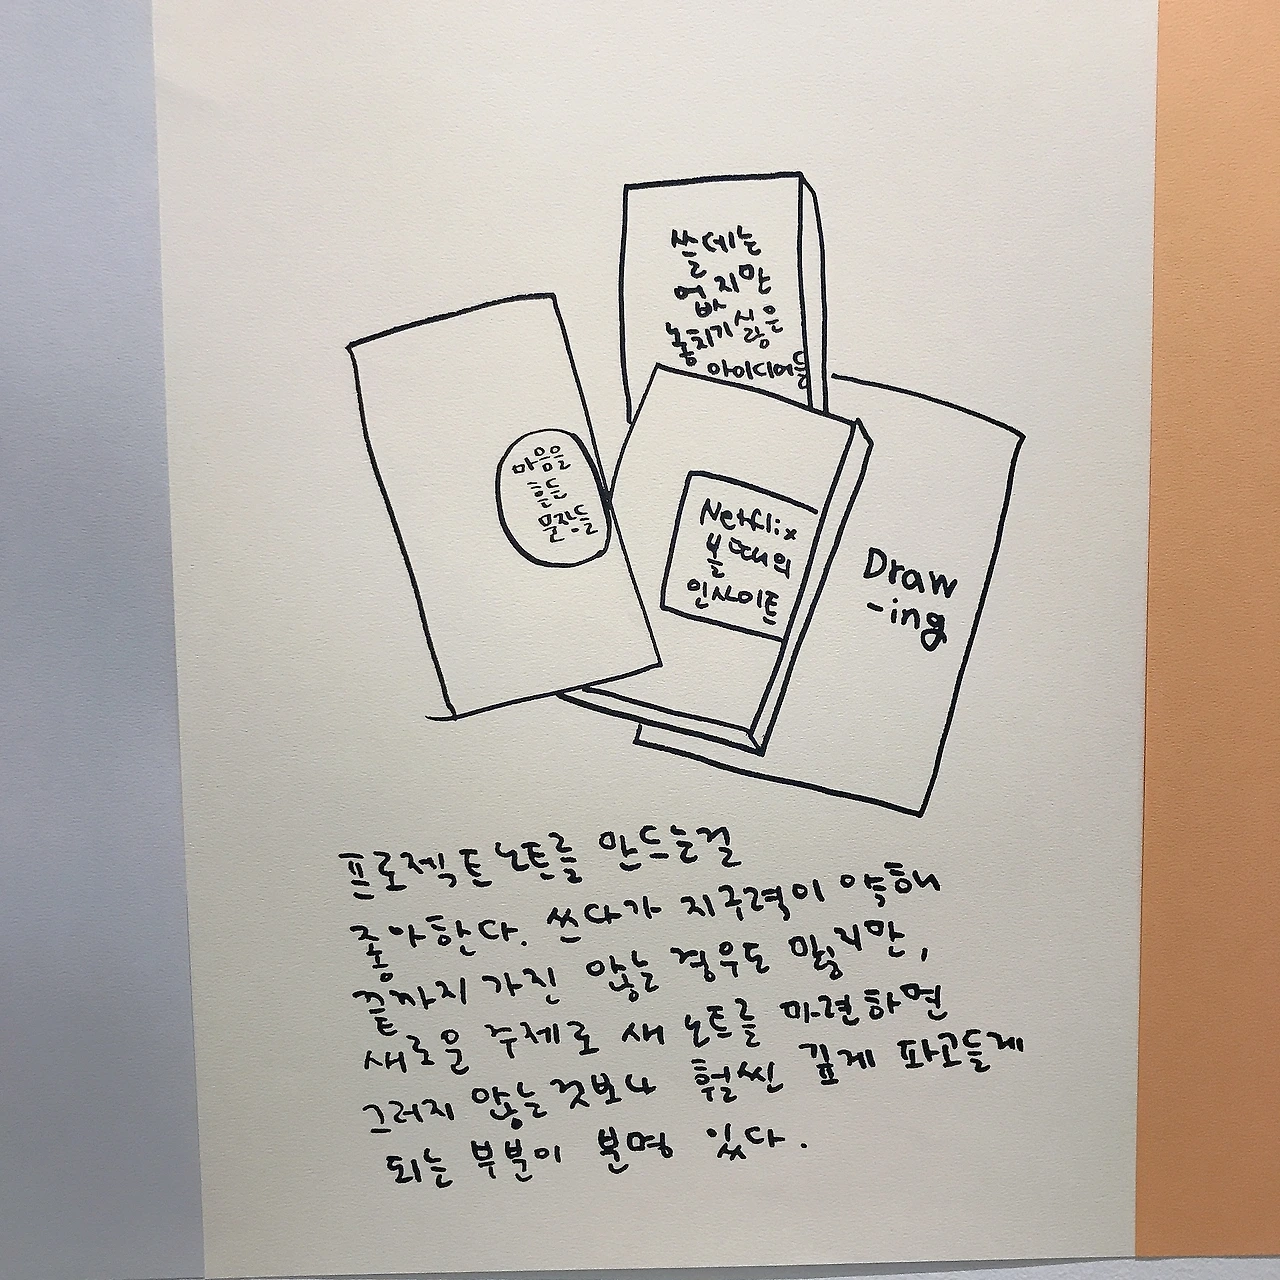 쓸데는
없지만
놓치기싫은
아이디어들
마음을
흔든
문장들
Netflix
볼때의
인사이트
Draw
-ing
프로젝트 노트를 만드는걸
좋아한다. 쓰다가 지구력이 약해
끝까지 가진 않는 경우도 많지만,
새로운 주제로 새 노트를 마련하면
그러지 않는것보다 훨씬 깊게 파고들게
되는 부분이 분명 있다.